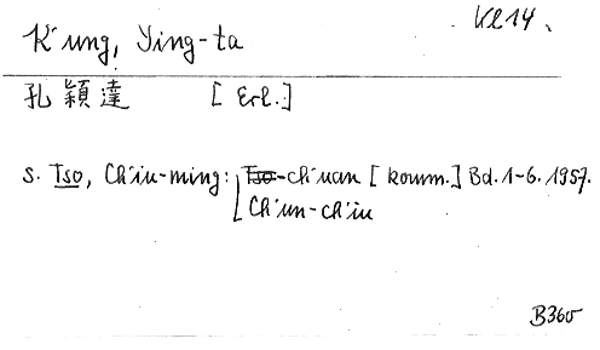 Kl 14.
K'ung, Ying-ta
孔穎達 [Erl.]
s. Tso, Ch'iu-ming: Tso-ch'uan [komm.] Bd. 1-6. 1957.
Ch'un-ch'iu
B360